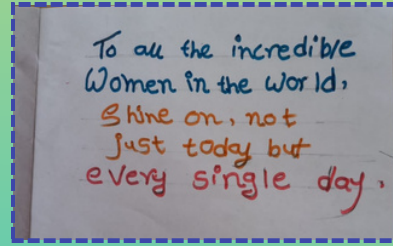 To all the incredible
Women in the world,
Shine on, not
just today but
every single day.